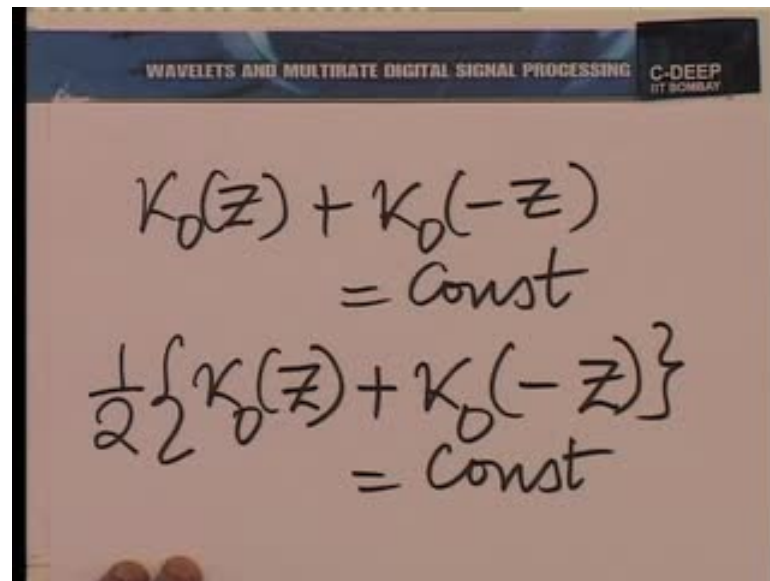 WAVELETS AND MULTIRATE DIGITAL SIGNAL PROCESSING
C-DEEP
IIT BOMBAY
K₀(Z) + K₀(-Z)
= Const
1/2 {K₀(Z) + K₀(-Z)}
= Const